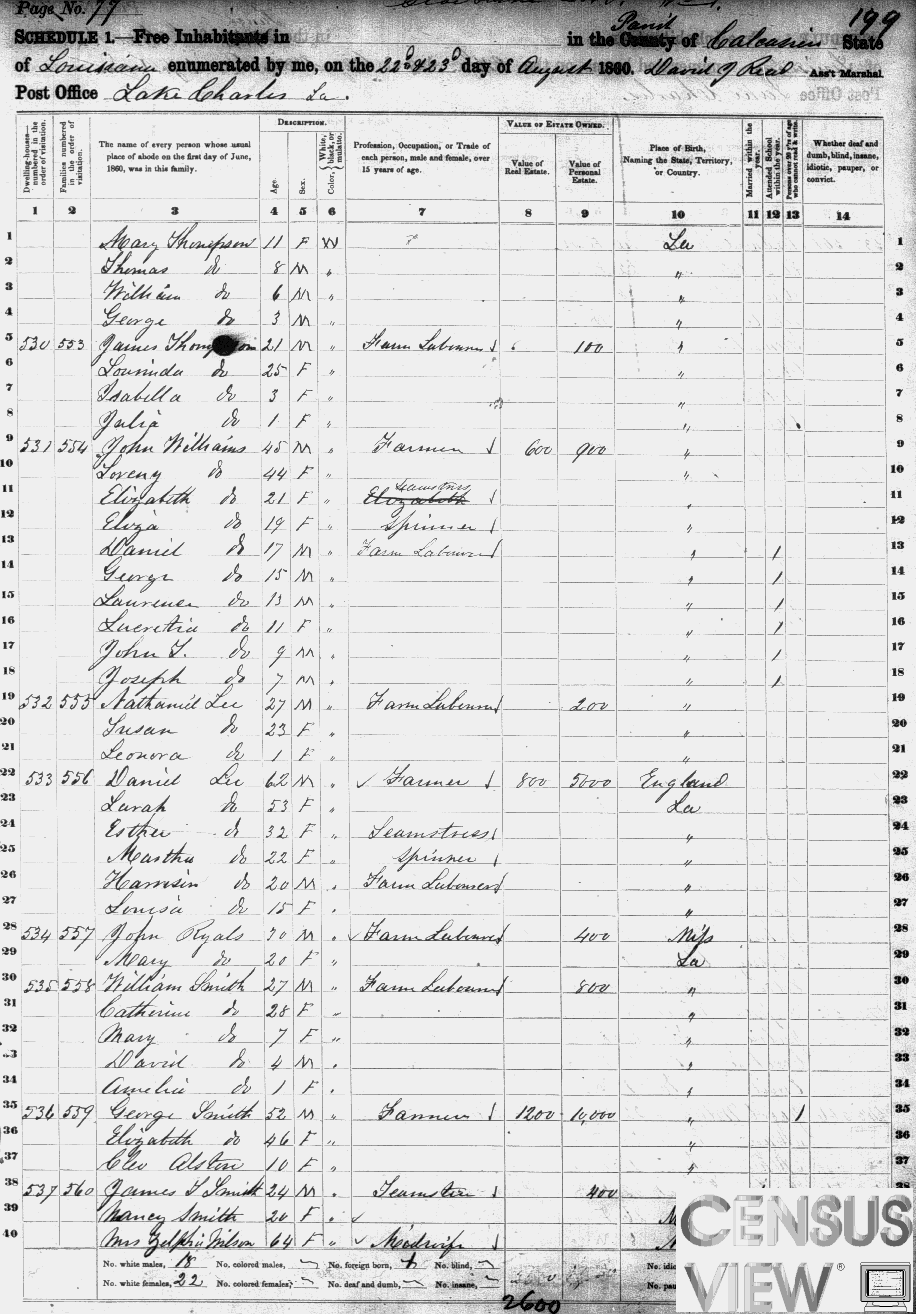 Page No. 77
199
SCHEDULE 1.—Free Inhabitants in in the County of Parish Calcasieu State
of Louisiana enumerated by me, on the 22d & 23d day of August 1860. David J Read Ass't Marshal.
Post Office Lake Charles La.
DESCRIPTION. VALUE OF ESTATE OWNED.
Dwelling-houses—numbered in the order of visitation.
Families numbered in the order of visitation.
The name of every person whose usual place of abode on the first day of June, 1860, was in this family.
Age.
Sex.
Color, { White, black, or mulatto.
Profession, Occupation, or Trade of each person, male and female, over 15 years of age.
Value of Real Estate.
Value of Personal Estate.
Place of Birth, Naming the State, Territory, or Country.
Married within the year.
Attended School within the year.
Persons over 20 y'rs of age who cannot read & write.
Whether deaf and dumb, blind, insane, idiotic, pauper, or convict.
1 2 3 4 5 6 7 8 9 10 11 12 13 14
1 Mary Thompson 11 F W La 1
2 Thomas do 8 M " " 2
3 William do 6 M " " 3
4 George do 3 M " " 4
5 530 553 James Thompson 21 M " Farm Labourer 100 " 5
6 Lourinda do 25 F " " 6
7 Isabella do 3 F " " 7
8 Julia do 1 F " " 8
9 531 554 John Williams 45 M " Farmer 600 900 " 9
10 Loveny do 44 F " " 10
11 Elizabeth do 21 F " Elizabeth Seamstress " 11
12 Eliza do 19 F " Spinner " 12
13 Daniel do 17 M " Farm Labourer " / 13
14 George do 15 M " " / 14
15 Laurence do 13 M " " / 15
16 Lucretia do 11 F " " / 16
17 John T. do 9 M " " / 17
18 Joseph do 7 M " " / 18
19 532 555 Nathaniel Lee 27 M " Farm Labourer 200 " 19
20 Susan do 23 F " " 20
21 Leonora do 1 F " " 21
22 533 556 Daniel Lee 62 M " ✓ Farmer 800 5000 England 22
23 Sarah do 53 F " La 23
24 Esther do 32 F " Seamstress " 24
25 Martha do 22 F " Spinner " 25
26 Harrison do 20 M " Farm Labourer " 26
27 Louisa do 15 F " " 27
28 534 557 John Ryals 30 M " ✓ Farm Labourer 400 Miss 28
29 Mary do 20 F " La 29
30 535 558 William Smith 27 M " Farm Labourer 800 " 30
31 Catherine do 28 F " " 31
32 Mary do 7 F " " 32
33 David do 4 M " " 33
34 Amelia do 1 F " " 34
35 536 559 George Smith 52 M " Farmer 1200 10,000 " 1 35
36 Elizabeth do 46 F " " 36
37 Cleo Alston 10 F " " 37
38 537 560 James T Smith 24 M " 400 38
39 Nancy Smith 20 F " ✓
40 Mrs Zelphia Wilson 64 F " ✓ Midwife
No. white males, 18 No. colored males, No. foreign born, 1 No. blind, No. idio
No. white females, 22 No. colored females, No. deaf and dumb, No. insane, No. pau
2600
CENSUS
VIEW®